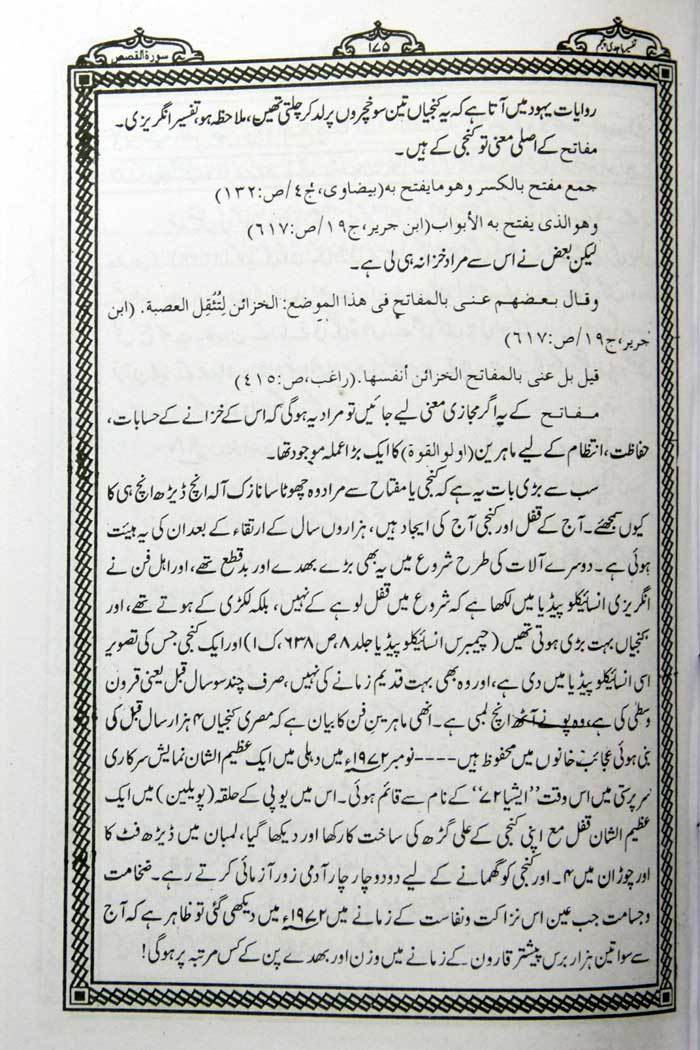 تفسیر ماجدی پنجم
۱۷۵
سورۃ القصص
روایات یہود میں آتا ہے کہ یہ کنجیاں تین سو خچروں پر لد کر چلتی تھین، ملاحظہ ہو، تفسیر انگریزی۔
مفاتح کے اصلی معنی تو کنجی کے ہیں۔
جمع مفتح بالکسر وھو مایفتح به (بیضاوی، ج٤/ص:۱۳۲)
وھو الذی یفتح به الأبواب (ابن جریر، ج۱۹/ص:٦۱۷)
لیکن بعض نے اس سے مراد خزانہ ہی لی ہے۔
وقال بعضھم عنی بالمفاتح فی ھذا الموضع: الخزائن لِتُثقِل العصبة. (ابن
جریر، ج۱۹/ص:٦۱۷)
قیل بل عنی بالمفاتح الخزائن أنفسھا. (راغب، ص:٤۱٥)
مفاتح کے یہ اگر مجازی معنی لیے جائیں تو مراد یہ ہوگی کہ اس کے خزانے کے حسابات،
حفاظت، انتظام کے لیے ماہرین (اولو القوة) کا ایک بڑا عملہ موجود تھا۔
سب سے بڑی بات یہ ہے کہ کنجی یا مفتاح سے مراد وہ چھوٹا سا نازک آلہ انچ ڈیڑھ انچ ہی کا
کیوں سمجھئے۔ آج کے قفل اور کنجی آج کی ایجاد ہیں، ہزاروں سال کے ارتقاء کے بعد ان کی یہ ہیئت
ہوئی ہے۔ دوسرے آلات کی طرح شروع میں یہ بھی بڑے بھدے اور بد قطع تھے، اور اہل فن نے
انگریزی انسائیکلوپیڈیا میں لکھا ہے کہ شروع میں قفل لوہے کے نہیں، بلکہ لکڑی کے ہوتے تھے، اور
کنجیاں بہت بڑی ہوتی تھیں (چیمبرس انسائیکلوپیڈیا جلد ۸، ص ۶۳۸، ک ۱) اور ایک کنجی جس کی تصویر
اسی انسائیکلوپیڈیا میں دی ہے، اور وہ بھی بہت قدیم زمانے کی نہیں، صرف چند سو سال قبل یعنی قرون
وسطی کی ہے، وہ پونے آٹھ انچ لمبی ہے۔ انھی ماہرین فن کا بیان ہے کہ مصری کنجیاں ۴ ہزار سال قبل کی
بنی ہوئی عجائب خانوں میں محفوظ ہیں ---- نومبر ۱۹۷۲ء میں دہلی میں ایک عظیم الشان نمایش سرکاری
سرپرستی میں اس وقت ”ایشیا ۷۲“ کے نام سے قائم ہوئی۔ اس میں یوپی کے حلقہ (پویلین) میں ایک
عظیم الشان قفل مع اپنی کنجی کے علی گڑھ کی ساخت کا رکھا اور دیکھا گیا، لمبان میں ڈیڑھ فٹ کا
اور چوڑان میں ۴۔ اور کنجی کو گھمانے کے لیے دو دو چار چار آدمی زور آزمائی کرتے رہے۔ ضخامت
و جسامت جب عین اس نزاکت و نفاست کے زمانے میں ۱۹۷۲ء میں دیکھی گئی تو ظاہر ہے کہ آج
سے سوا تین ہزار برس پیشتر قارون کے زمانے میں وزن اور بھدے پن کے کس مرتبہ پر ہوگی!